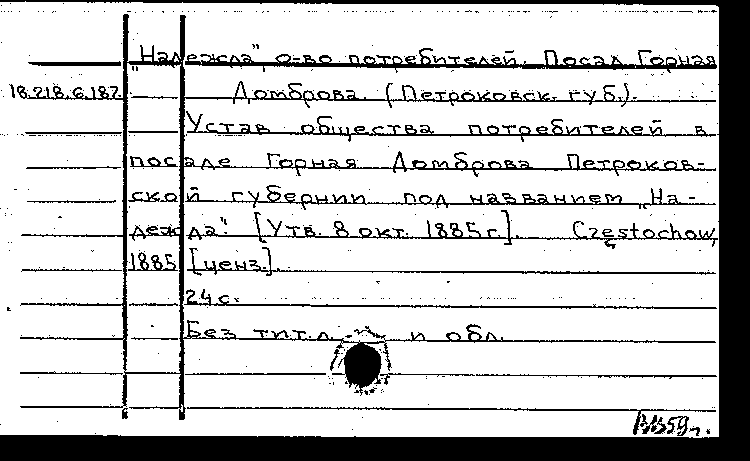 „Надежда", о-во потребителей. Посад Горная
18.218.6.187 Домброва. (Петроковск. губ.).
Устав общества потребителей в
посаде Горная Домброва Петроков-
ской губернии под названием „На-
дежда". [Утв. 8 окт. 1885 г.]. Częstochow,
1885 [ценз.].
24 с.
Без тит. л. и обл.